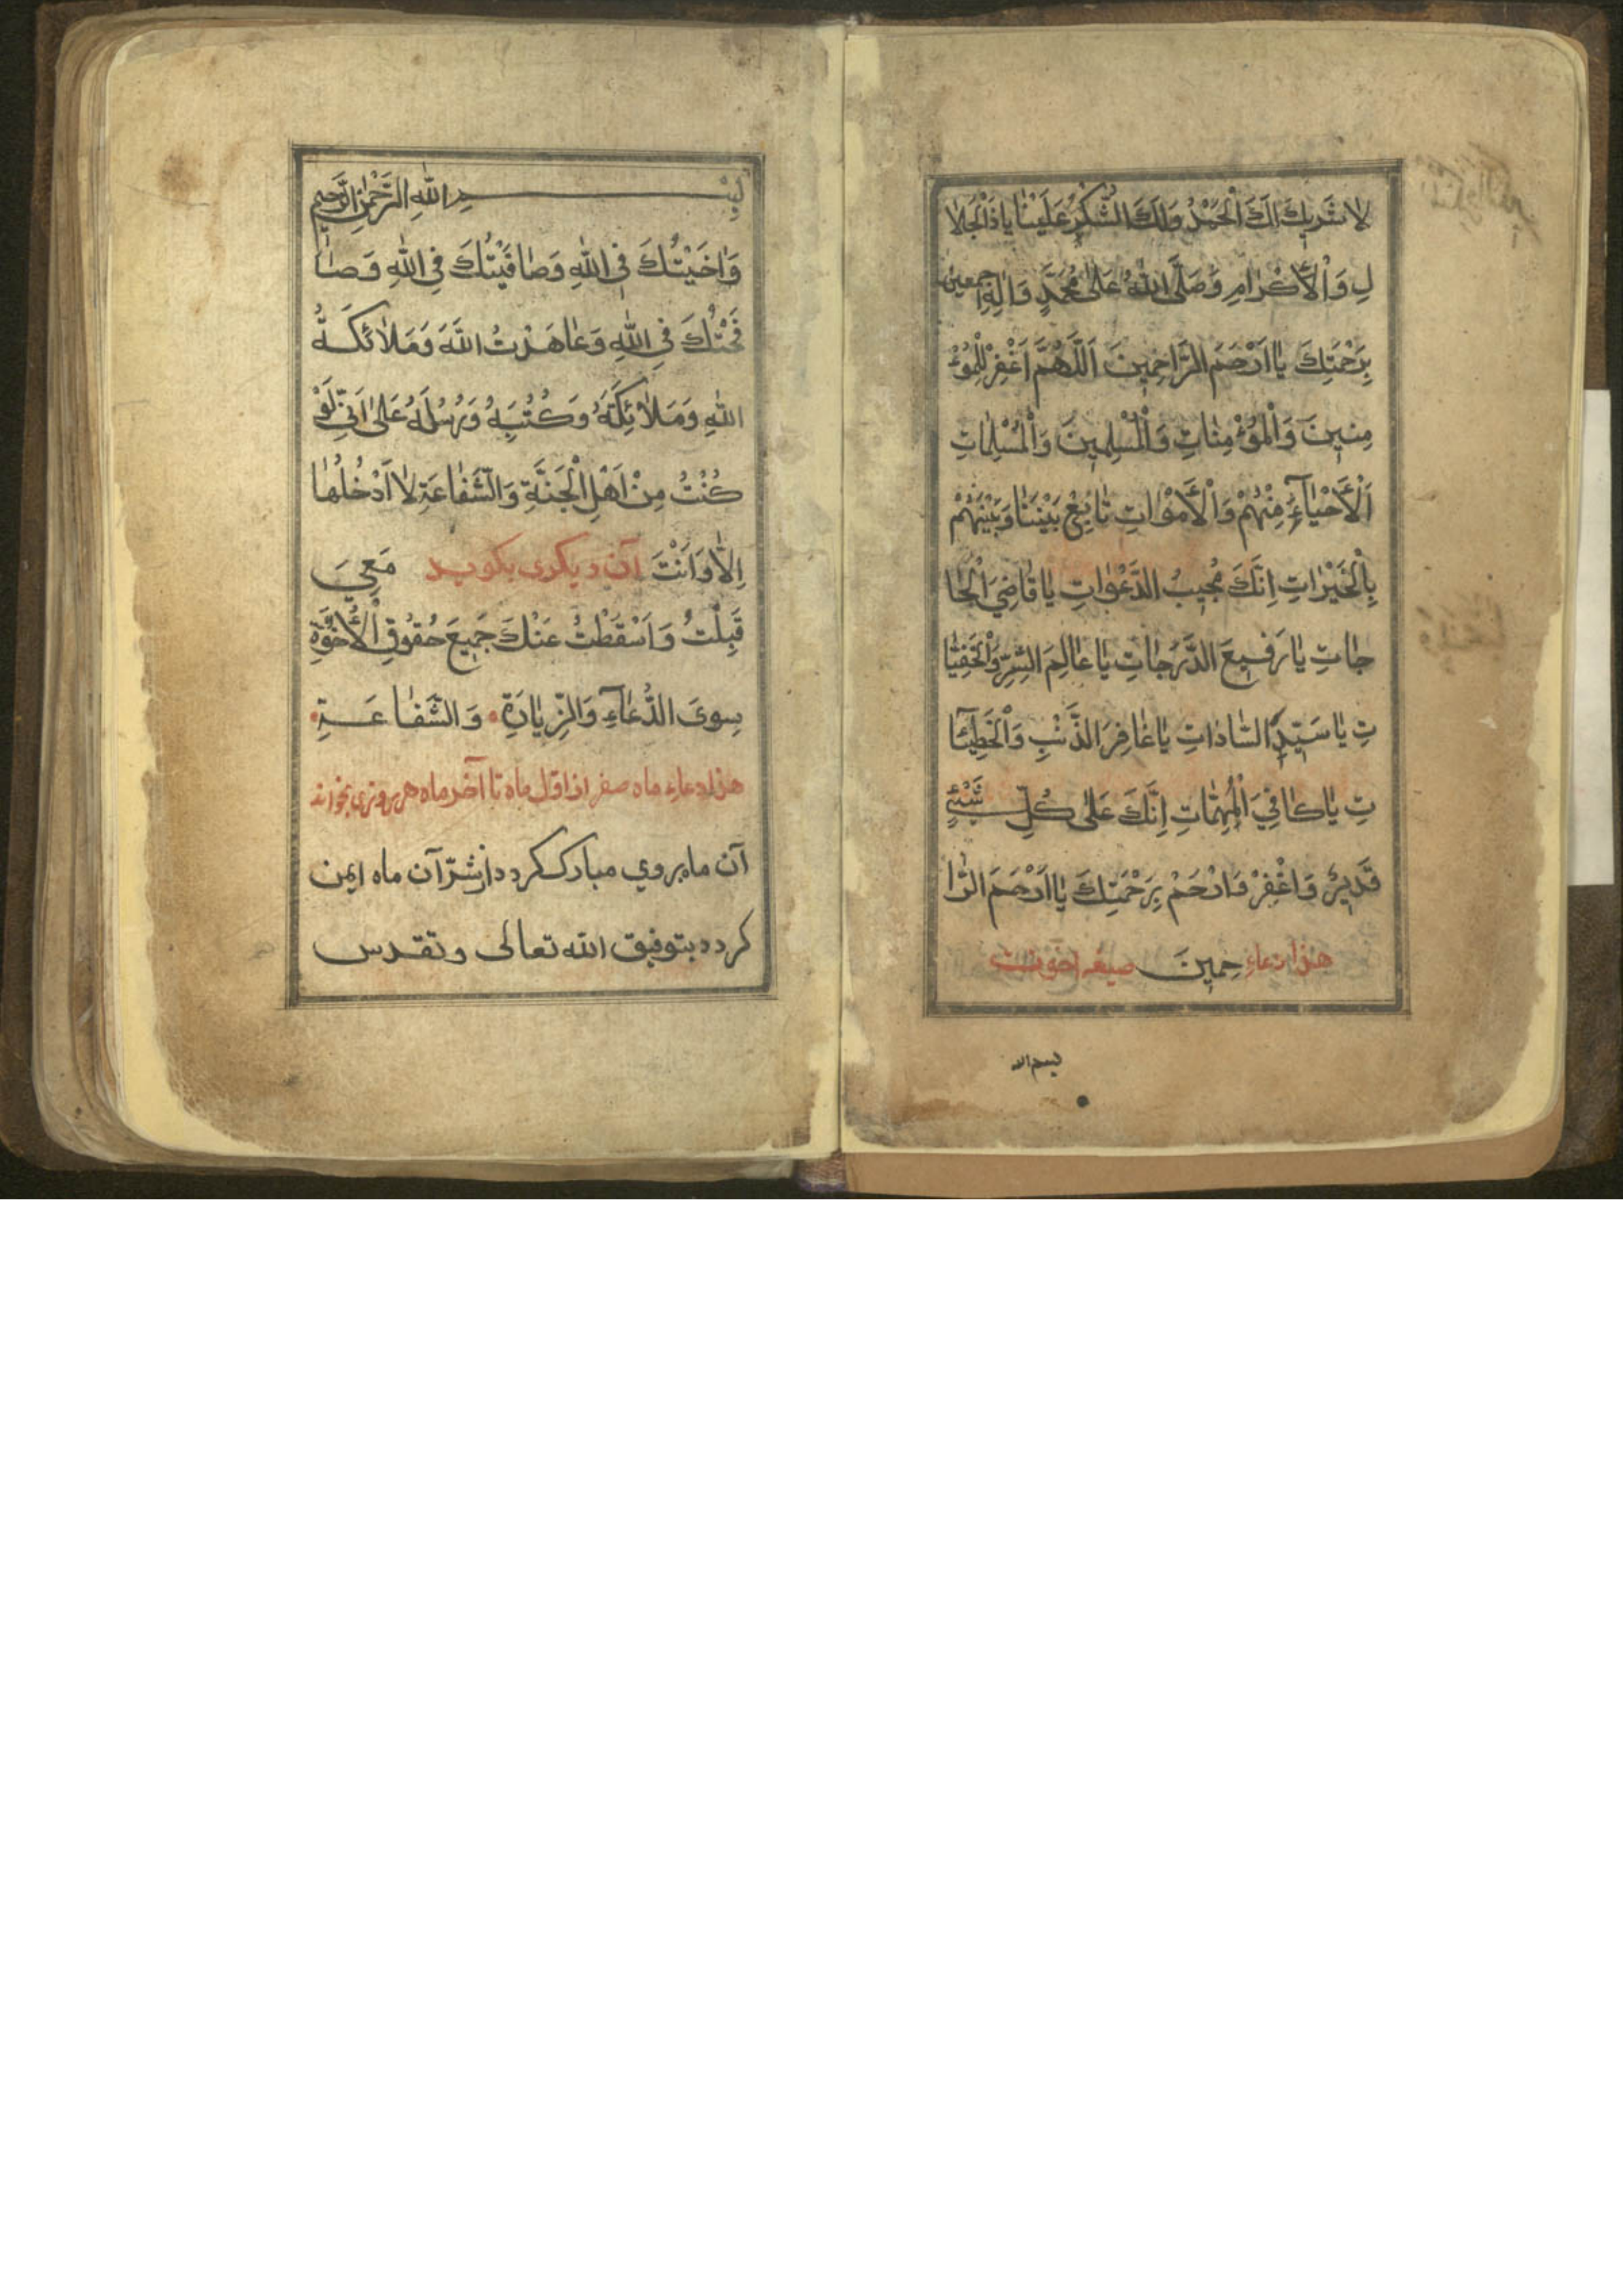 لَا شَرِيكَ لَكَ الْحَمْدُ وَلَكَ الشُّكْرُ عَلَيْنَا يَا ذَالْجَلَا
لِ وَالْاَكْرَامِ وَصَلَّى اللّٰهُ عَلٰى مُحَمَّدٍ وَاٰلِهِ اجمعين
بِرَحْمَتِكَ يَا اَرْحَمَ الرَّاحِمِينَ اَللّٰهُمَّ اغْفِرْ لِلْمُؤْ
مِنِينَ وَالْمُؤْمِنَاتِ وَالْمُسْلِمِينَ وَالْمُسْلِمَاتِ
اَلْاَحْيَآءِ مِنْهُمْ وَالْاَمْوَاتِ تَابِعْ بَيْنَنَا وَبَيْنَهُمْ
بِالْخَيْرَاتِ اِنَّكَ مُجِيبُ الدَّعْوَاتِ يَا قَاضِيَ الْحَا
جَاتِ يَا رَفِيعَ الدَّرَجَاتِ يَا عَالِمَ السِّرِّ وَالْخَفِيَّا
تِ يَا سَيِّدَ السَّادَاتِ يَا غَافِرَ الذَّنْبِ وَالْخَطِيئَا
تِ يَا كَافِيَ الْمُهِمَّاتِ اِنَّكَ عَلٰى كُلِّ شَيْئٍ
قَدِيرٌ وَاغْفِرْ وَارْحَمْ بِرَحْمَتِكَ يَا اَرْحَمَ الرَّا
هذا دعاء حِمِينَ صيغه اخوت
بسم الله
بِسْمِ اللّٰهِ الرَّحْمٰنِ الرَّحِيمِ
وَاٰخَيْتُكَ فِي اللّٰهِ وَصَافَيْتُكَ فِي اللّٰهِ وَصَا
فَحْتُكَ فِي اللّٰهِ وَعَاهَدْتُ اللّٰهَ وَمَلَائِكَةُ
اللّٰهِ وَمَلَائِكَتَهُ وَكُتُبِهُ وَرُسُلَهُ عَلٰى اَنِّي لَوْ
كُنْتُ مِنْ اَهْلِ الْجَنَّةِ وَالشَّفَاعَةِ لَا اَدْخُلُهَا
اِلَّا وَاَنْتَ آن ديكرى بكويد مَعِيَ
قَبِلْتُ وَاَسْقَطْتُ عَنْكَ جَمِيعَ حُقُوقِ الْاُخُوَّةِ
سِوَى الدُّعَآءِ وَالزِّيَارَةِ وَالشَّفَاعَةِ
هذا دعاء ماه صفر از اول ماه تا آخر ماه هر روزى بخواند
آن ماه بروي مبارك كردد از شرّ آن ماه ايمن
كردد بتوفيق الله تعالى وتقدس